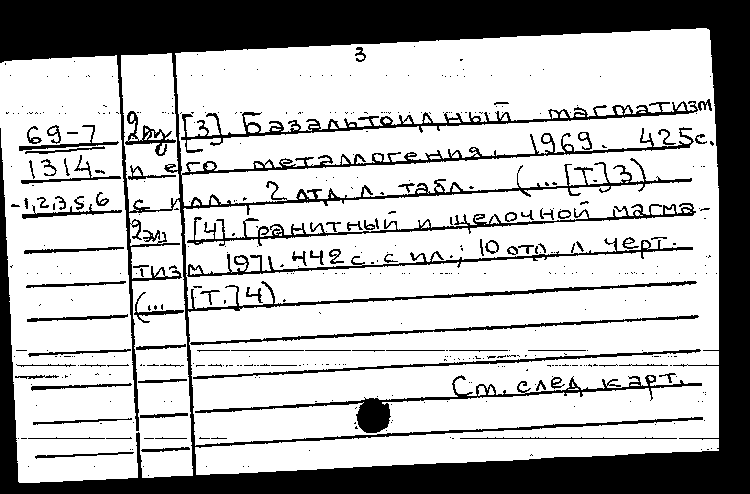 3
69-7 2экз [3]. Базальтоидный магматизм
1314- и его металлогения. 1969. 425с.
-1,2,3,5,6 с илл.; 2 отд. л. табл. (...[Т.]3).
2экз [4]. Гранитный и щелочной магма-
тизм. 1971. 442 с. с ил.; 10 отд. л. черт.
(... [Т.]4).
См. след. карт.